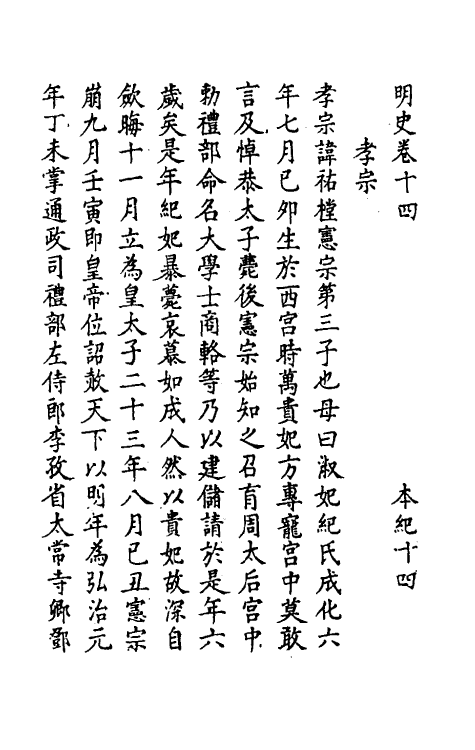 明史卷十四 本紀十四
孝宗
孝宗諱祐樘憲宗第三子也母曰淑妃紀氏成化六
年七月已夘生於西宮時萬貴妃方專寵宮中莫敢
言及悼恭太子薨後憲宗始知之召育周太后宮中
勅禮部命名大學士商輅等乃以建儲請於是年六
歲矣是年紀妃暴薨哀慕如成人然以貴妃故深自
歛晦十一月立為皇太子二十三年八月已丑憲宗
崩九月壬寅即皇帝位詔赦天下以明年為弘治元
年丁未掌通政司禮部左侍郎李孜省太常寺卿鄧